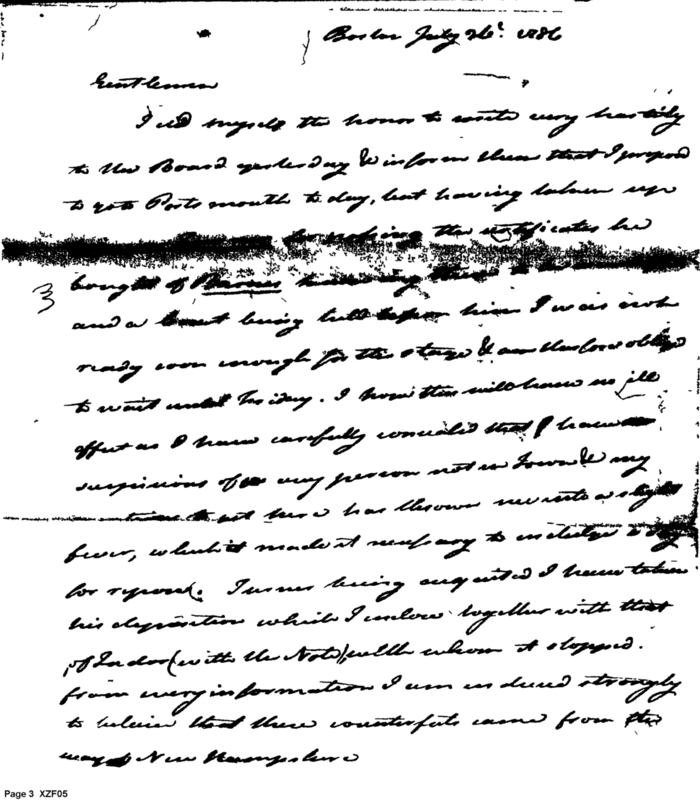 Boston July 26t. 1786
Gentlemen
I did myself the honor to write very hastily
to the Board yesterday & inform them that I propos'd
to go to Portsmouth to day, but having taken up
for making the certificates he
bought of Barnes knowing them to be
and a being held upon him I was not
ready soon enough for the stage & am therefore oblig'd
to wait until Friday. I hope this will have no ill
effect as I have carefully concealed that I have
suspicions of any person not in Town & my
here has thrown me into a slight
fever, which it made it necessary to indulge a day
for repose. Turner being acquited I have taken
his deposition which I inclose together with that
of (with the Note) with whom it stopped.
from every information I am induced strongly
to believe that these counterfeits came from the
way of New Hampshire
Page 3 XZF05